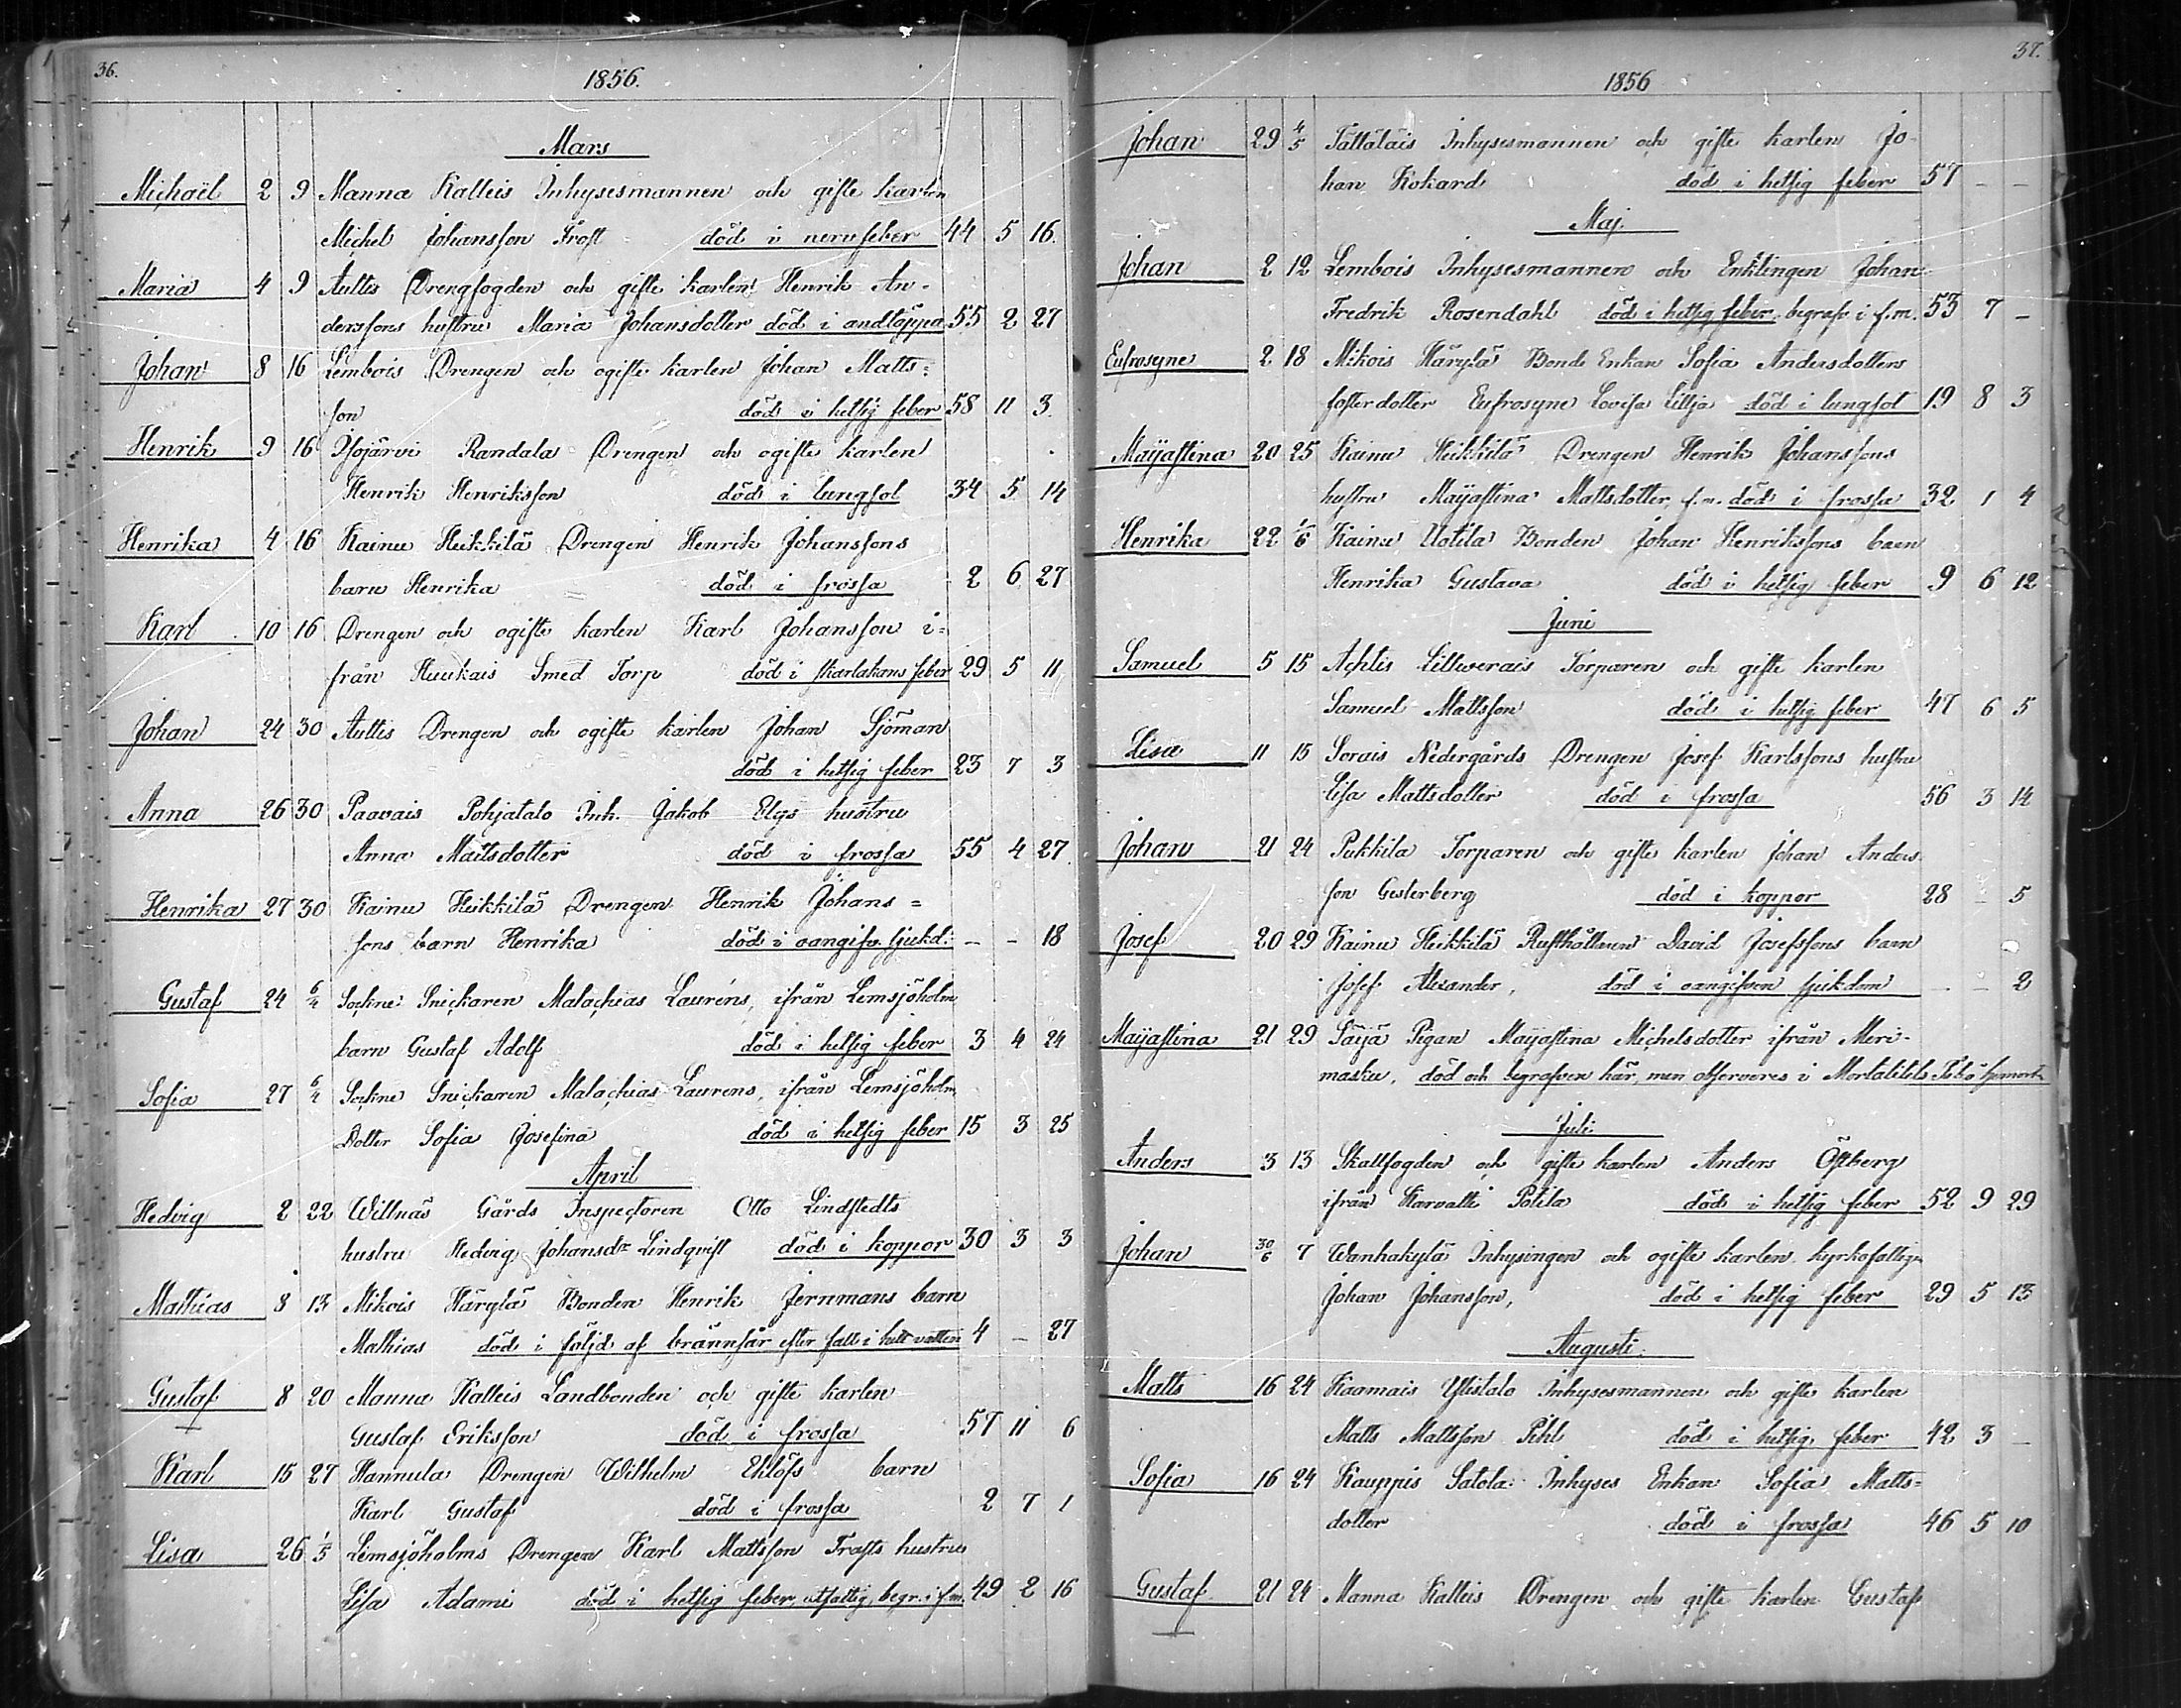 36.
1856.
Mars
Michaël 2 9 Manna Kalleis Inhysesmannen och gifte karlen
Michel Johansson Frost död i nervfeber 44 5 16.
Maria 4 9 Aullis Drengfogden och gifte karlen Henrik An-
derssons hustru Maria Johansdotter död i andtäppa 55 2 27
Johan 8 16 Lembois Drengen och ogifte karlen Johan Matts=
son död i hetsig feber 58 11 3.
Henrik 9 16 Isojärvi Randala Drengen och ogifte karlen
Henrik Henriksson död i lungsot 34 5 14
Henrika 4 16 Kainu Heikkilä Drengen Henrik Johanssons
barn Henrika död i frossa 2 6 27
Karl 10 16 Drengen och ogifte karlen Karl Johansson i=
från Huukais Smed Torp död i skarlakans feber 29 5 11
Johan 24 30 Aullis Drengen och ogifte karlen Johan Sjöman
död i hetsig feber 23 7 3
Anna 26 30 Paavais Pohjatalo Inh. Jakob Elgs hustru
Anna Mattsdotter död i frossa 55 4 27.
Henrika 27 30 Kainu Heikkilä Drengen Henrik Johans=
sons barn Henrika död i oangifv. sjukd: – – 18
Gustaf 24 6/4 Sockne Snickaren Malachias Lauréns, ifrån Lemsjöholm,
barn Gustaf Adolf död i hetsig feber 3 4 24
Sofia 27 6/4 Sockne Snickaren Malachias Lauréns, ifrån Lemsjöholm,
Dotter Sofia Josefina död i hetsig feber 15 3 25
April
Hedvig 2 22 Willnäs Gårds Inspectoren Otto Lindstedts
hustru Hedvig Johansdr Lindqvist död i koppor 30 3 3
Mathias 8 13 Mikois Häryla Bonden Henrik Jernmans barn
Mathias död i följd af brännsår efter fall i hett vatten 4 – 27
Gustaf 8 20 Manna Kalleis Landbonden och gifte karlen
Gustaf Eriksson död i frossa 57 11 6
Karl 15 27 Hannula Drengen Wilhelm Eklöfs barn
Karl Gustaf död i frossa 2 7 1
Lisa 26 1/5 Lemsjöholms Drengen Karl Mattsson Trafts hustru
Lisa Adami död i hetsig feber, utfattig, begr. i f.m. 49 2 16
37.
1856
Johan 29 4/5 Tättäläis Inhysesmannen och gifte karlen Jo-
han Kokard död i hetsig feber 57 – –
Maj.
Johan 2 12 Lembois Inhysesmannen och Enklingen Johan
Fredrik Rosendahl död i hetsig feber, begrafv i f.m. 53 7 –
Eufrosyne 2 18 Mikois Häryla Bonde Enkan Sofia Andersdotters
fosterdotter Eufrosyne Lovisa Lillja död i lungsot 19 8 3
Majastina 20 25 Kainu Heikkilä Drengen Henrik Johanssons
hustru Majastina Mattsdotter, f.m. död i frossa 32 1 4
Henrika 22 1/6 Kainu Uotila Bonden Johan Henrikssons barn
Henrika Gustava död i hetsig feber 9 6 12
Juni
Samuel 5 15 Achtis Lilluverais Torparen och gifte karlen
Samuel Mattsson död i hetsig feber 47 6 5
Lisa 11 15 Sorais Nedergårds Drengen Josef Karlssons hustru
Lisa Mattsdotter död i frossa 56 3 14
Johan 21 24 Pukkila Torparen och gifte karlen Johan Anders
son Gesterberg död i koppor 28 – 5
Josef 20 29 Kainu Heikkilä Rusthållaren David Josefssons barn
Josef Alexander, död i oangifven sjukdom – – 2
Majastina 21 29 Säyä Pigan Majastina Michelsdotter ifrån Meri-
masku, död och begrafven här, men observeres i Mortalitets
Juli.
Anders 3 13 Skallfogden och gifte karlen Anders Östberg
ifrån Karvatti Potila död i hetsig feber 52 9 29
Johan 30/6 7 Wanhakylä Inhysingen och ogifte karlen, kyrkofattige
Johan Johansson, död i hetsig feber 29 5 13
Augusti.
Matts 16 24 Kaamais Ylistalo Inhysesmannen och gifte karlen
Matts Mattsson Pihl död i hetsig feber 42 3 –
Sofia 16 24 Kauppis Satola Inhyses Enkan Sofia Matts=
dotter död i frossa 46 5 10
Gustaf 21 24 Manna Kalleis Drengen och gifte karlen Gustaf